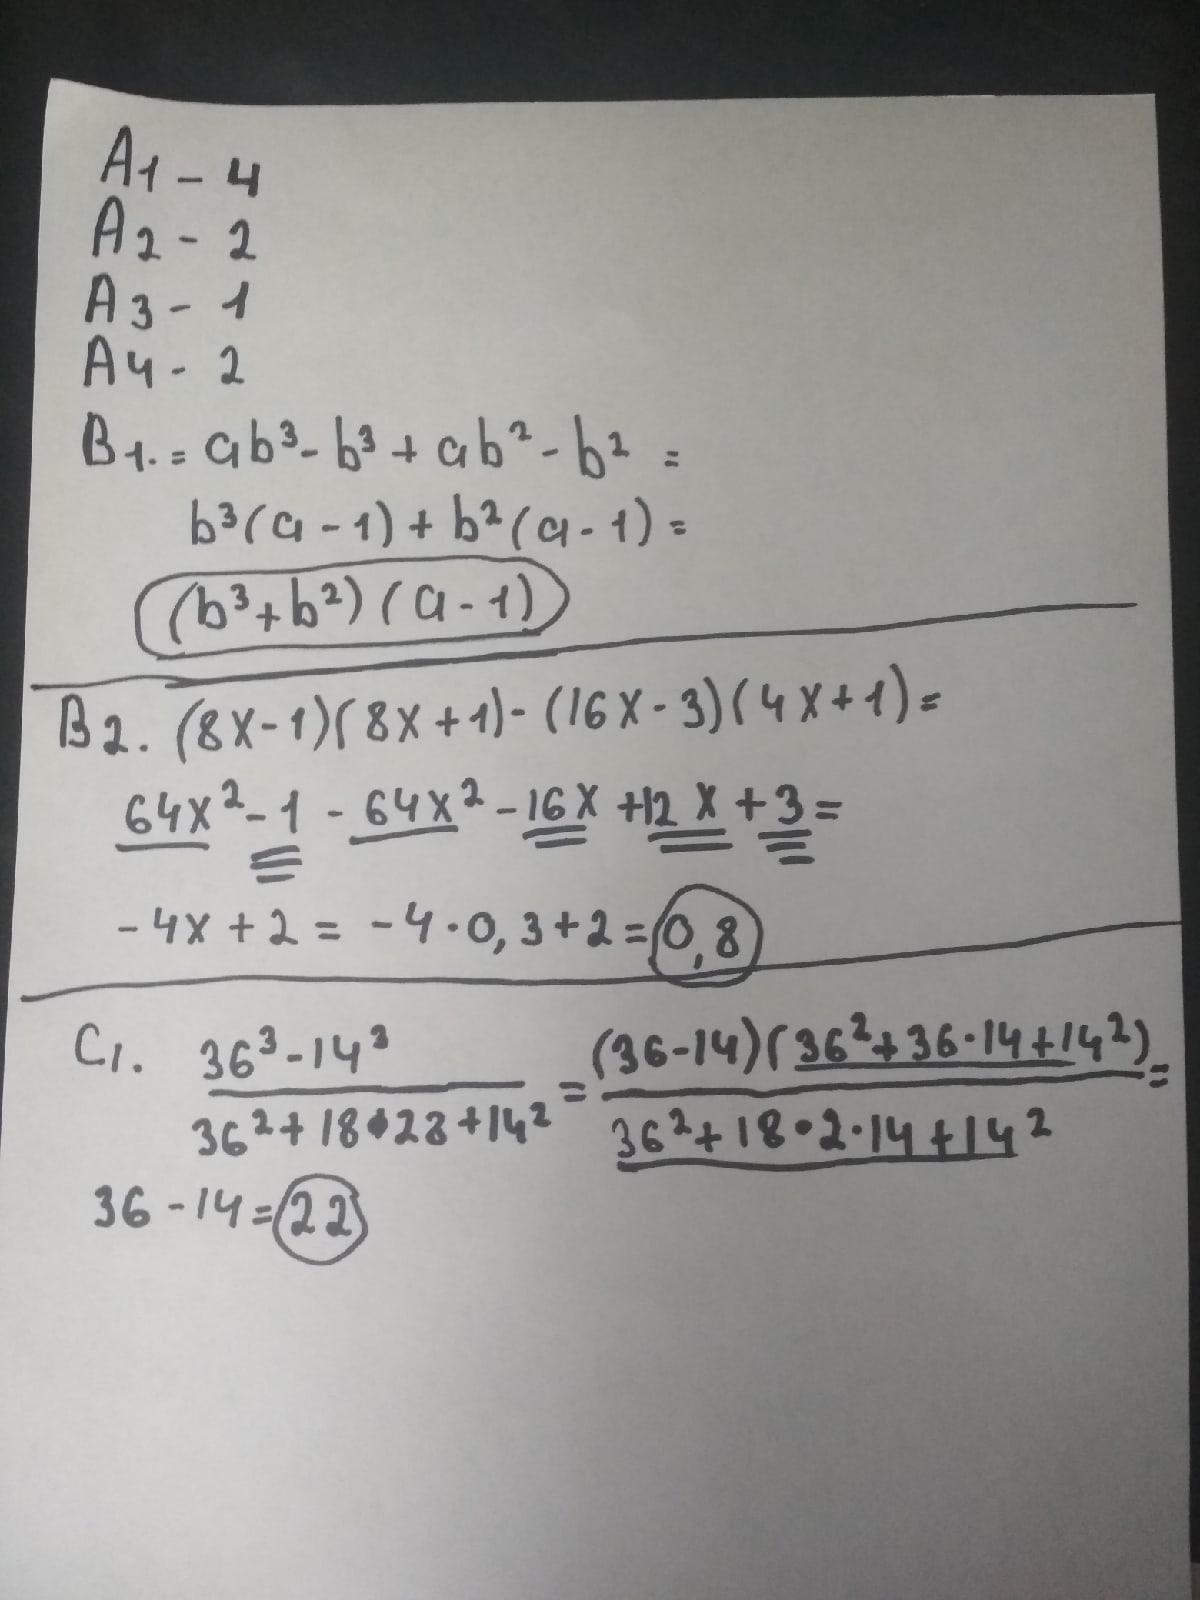 A1 - 4
A2 - 2
A3 - 1
A4 - 2
B1. = ab³ - b³ + ab² - b² =
b³(a - 1) + b²(a - 1) =
(b³ + b²)(a - 1)
B2. (8x - 1)(8x + 1) - (16x - 3)(4x + 1) =
64x² - 1 - 64x² - 16x + 12x + 3 =
-4x + 2 = -4 · 0,3 + 2 = 0,8
C1. (36³ - 14³)/(36² + 18 · 28 + 14²) = ((36 - 14)(36² + 36 · 14 + 14²))/(36² + 18 · 2 · 14 + 14²) =
36 - 14 = 22